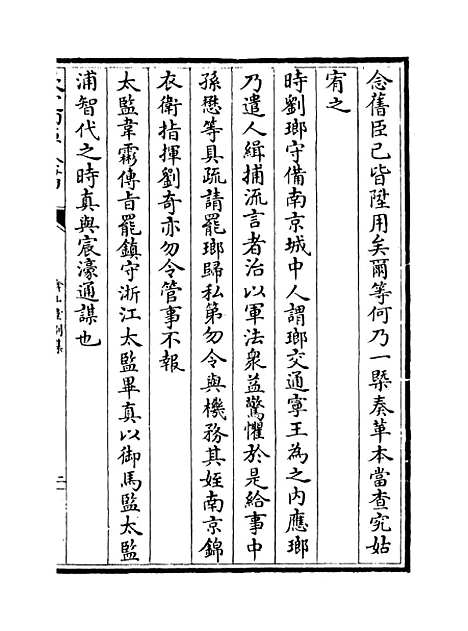 念舊臣已皆陞用矣爾等何乃一槩奏革本當查究姑
宥之
時劉瑯守備南京城中人謂瑯交通寧王為之內應瑯
乃遣人緝捕流言者治以軍法衆益驚懼於是給事中
孫懋等具疏請罷瑯歸私第勿令與機務其姪南京錦
衣衛指揮劉奇亦勿令管事不報
太監韋霦傳旨罷鎮守浙江太監畢真以御馬監太監
浦智代之時真與宸濠通謀也
弇山堂別集